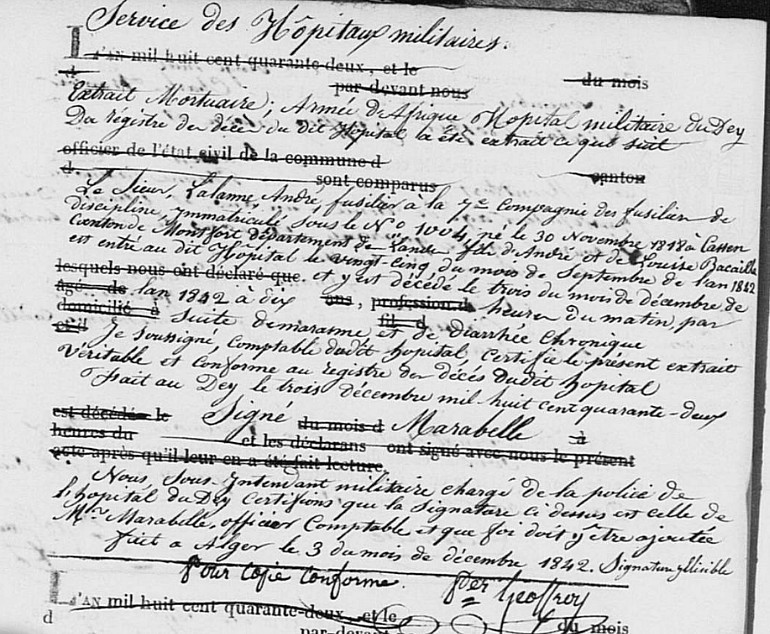 Service des Hôpitaux militaires.
L'AN mil huit cent quarante-deux, et le du mois
d par-devant nous
Extrait Mortuaire; Armée d'Afrique Hopital militaire du Dey
Du régistre des décès du dit Hopital a été extrait ce qui suit
officier de l'état civil de la commune d canton
d sont comparus
Le Sieur, Lalanne, André, fusilier à la 7e Compagnie des fusiliers de
discipline, Immatriculé sous le No 1004, né le 30 Novembre 1818 à Cassen
Canton de Monsfort département de Landes fils d'André et de Louise Bacaille
est entré au dit Hopital le vingt-cinq du mois de Septembre de l'an 1842
lesquels nous ont déclaré que et y est décédé le trois du mois de décembre de
âgé de lan 1842 à dix ans, profession d heures du matin, par
domicilié à suite de marasme et de Diarrhée Chronique fils d
et d Je soussigné, Comptable dudit hopital certifie le présent extrait
véritable et conforme au registre des décès dudit hopital
Fait au Dey le trois décembre mil huit cent quarante-deux
est décédé le Signé du mois d Marabelle à
heures du et les déclarans ont signé avec nous le présent
acte après qu'il leur en a été fait lecture.
Nous, Sous Intendant militaire chargé de la police de
L'hopital du Dey Certifions que la Signature ci dessus est celle de
Mr Marabelle, officier Comptable et que foi doit y être ajoutée
fait a Alger le 3 du mois de décembre 1842. Signature illisible
Pour copie Conforme. Geoffroy
L'AN mil huit cent quarante-deux, et le du mois
d par-devant